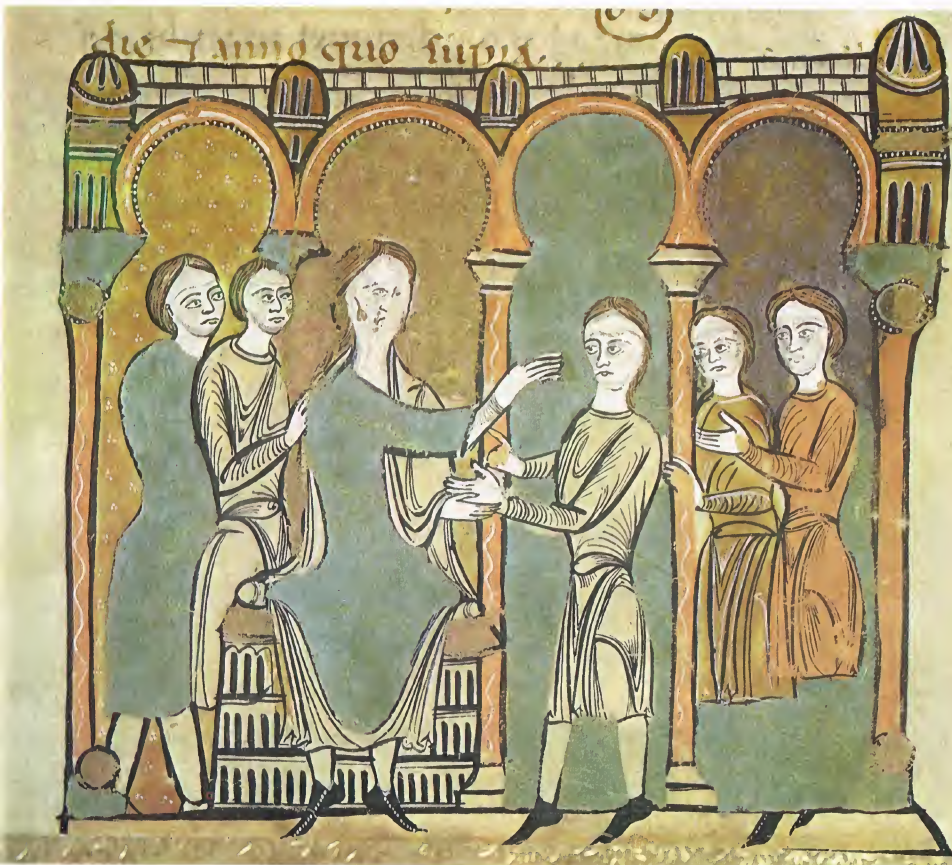 die ⁊ anno quo supra.